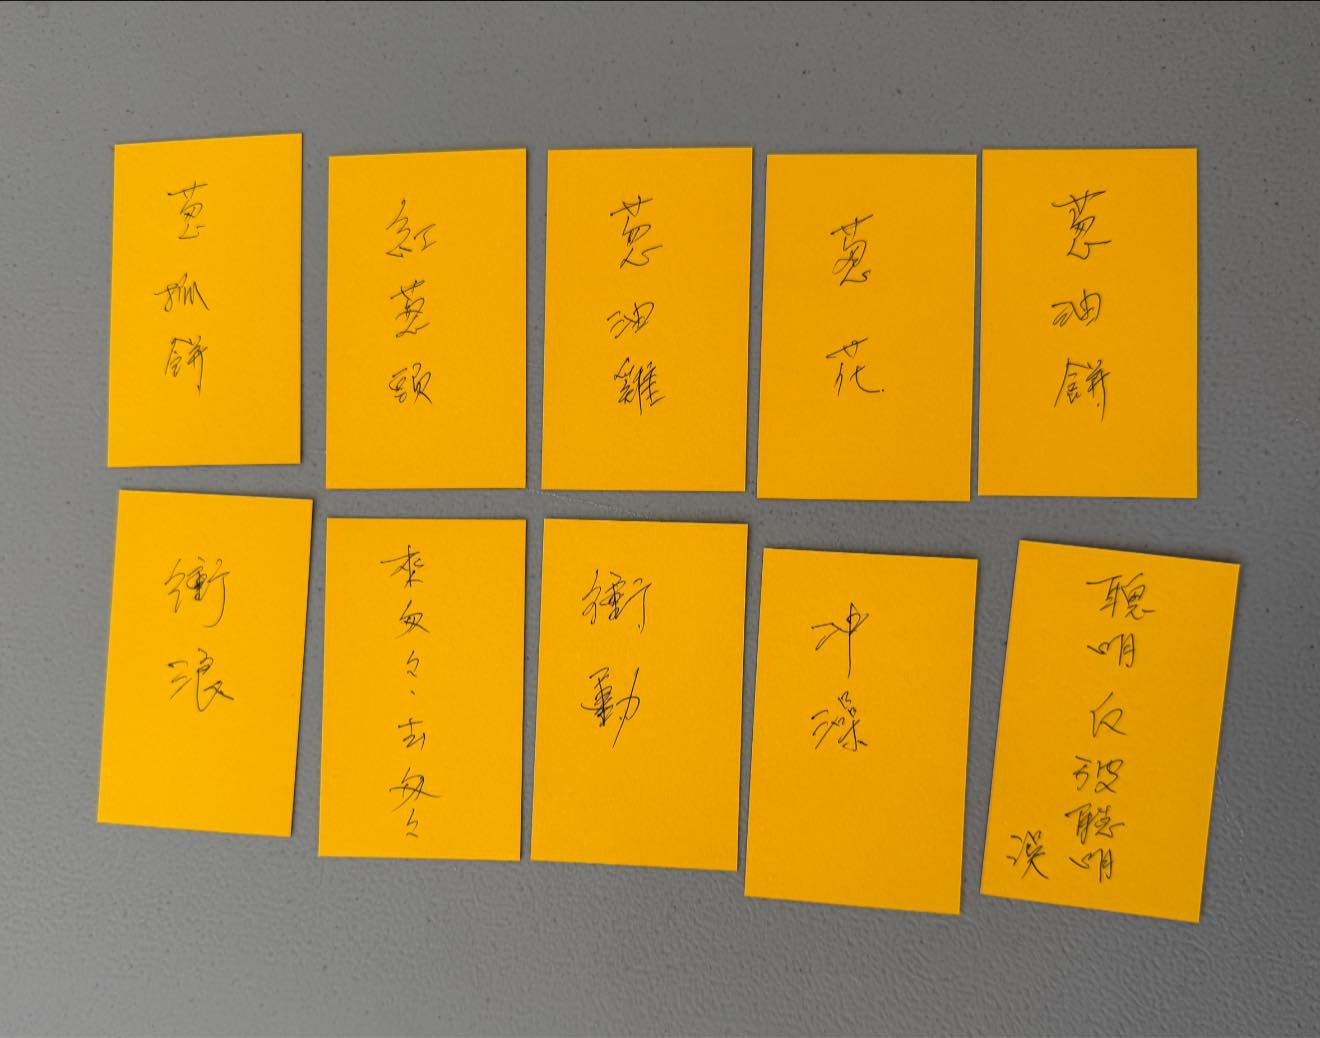 蔥抓餅
紅蔥頭
蔥油雞
蔥花
蔥油餅
衝浪
來匆匆、去匆匆
衝動
沖澡
聰明反被聰明
誤